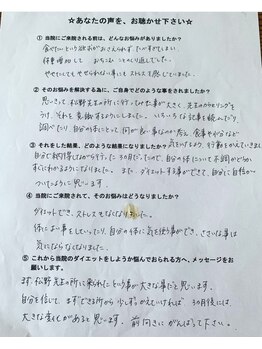 ☆あなたの声を、お聴かせ下さい☆
① 当院にご来院される前は、どんなお悩みがありましたか?
食べたいという欲求がおさえられず たべすぎてしまい
体重増加して おちこむ ことのくり返しでした。
やせたくてもやせられない事にも ストレスを感じていました。
② そのお悩みを解決する為に、ご自身でどのような事をされましたか?
思いきって松野先生の所に行ってみた事が大きく、先生のカウンセリングを
うけ、それを意識するようにしました。いろいろな記事を読んだり
調べたり 自分の体にとって 何が良い事なのか考え 食事や体などに
気をつけながら、行動していきました
③ それをした結果、どのような結果になりましたか?
自分で納得しながら行って、3カ月たったので、自分の体について不調かどうか
すぐにわかるようになりました。また、ダイエットする事ができて、自分に自信が
ついたように思います。
④ 当院にご来院されて、そのお悩みはどうなりましたか?
ダイエットでき、ストレスもなくなりました。
体によい事をしていたり、自分の体に気を使う事ができ、ささいな事は
気にならなくなりました。
⑤ これから当院のダイエットをしようか悩んでおられる方へ、メッセージをお
願いします。
まず、松野先生の所に来られたという事が大事だと思います。
自分を信じて、まずできる所から 少しずつかえていければ 3カ月後には、
大きな変化があると思います。前向きにがんばって下さい。